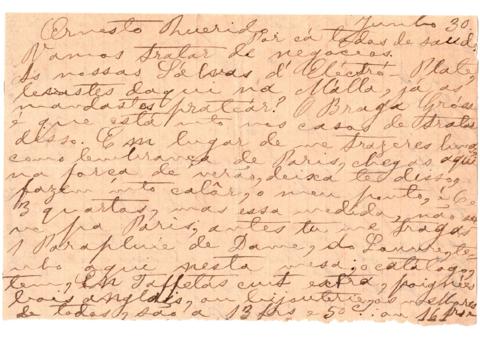 Ernesto Querid Junho 30.
Por cá todos de saude.
Vamos tratar de negocios.
As nossas Salvas d'Electro Plate,
levastes daqui na Malla, já as
mandastes pratear? O Braga
é que está nos casos de tratar
disso. Em lugar de me trazeres
como lembrança de Paris, chegas aqui
na força de verão, deixa te disso,
fazem mto calôr, o meu ponto, é
3 quartas, mas essa medida, não se
pa Paris, antes tu me tragas
1 Parapluie de Dame, do Louvre,
aqui nesta meza o catalogo,
tem, En Taffetas cuit extra, poignées
bois anglais, ou bijouterie, os melhores
de todos, são a 13 frs e 50 c. ou 16 frs